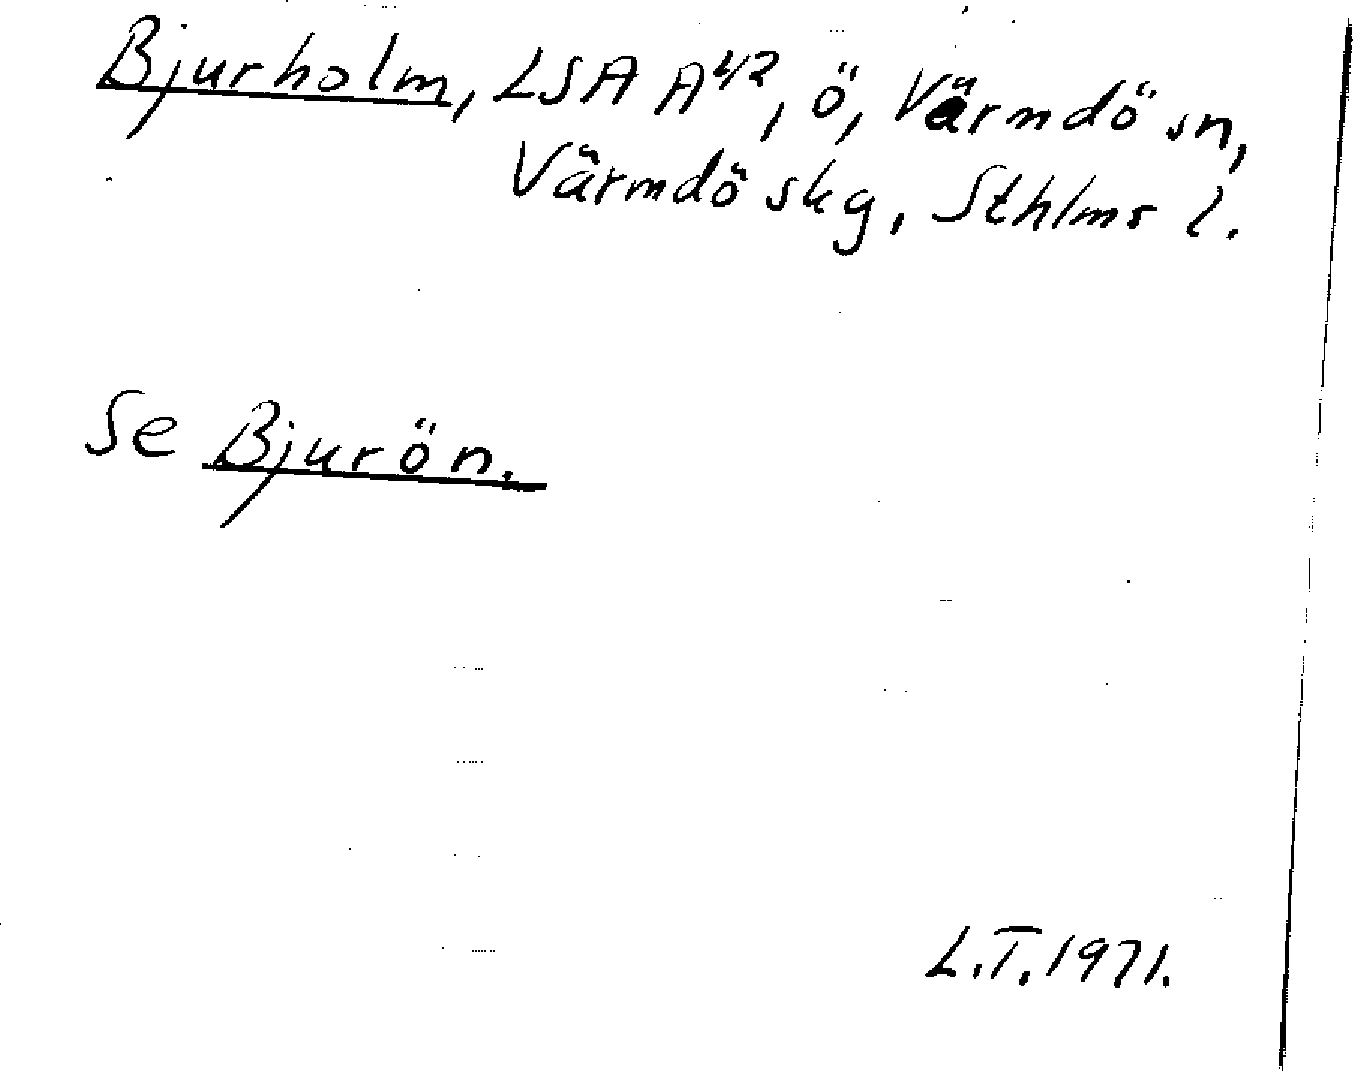 Bjurholm, LSA A42, ö, Värmdö sn,
Värmdö skg, Sthlms l.
Se Bjurön.
L.T. 1971.